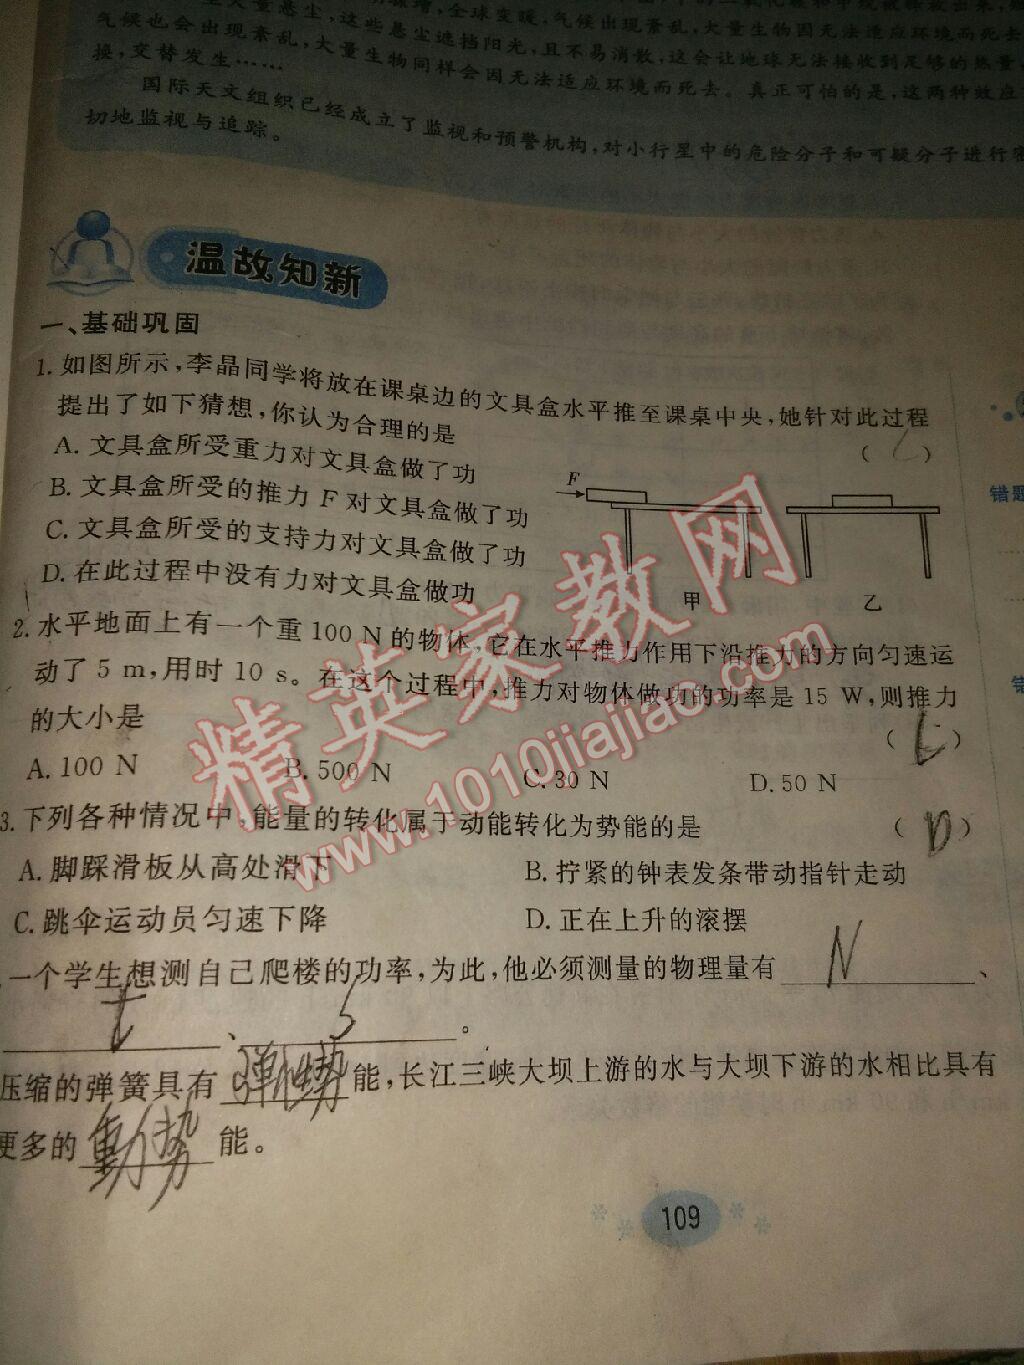 气候也会出现紊乱,大量悬尘,这些悬尘遮挡阳光,且不易消散,这会让地球无法接收到足够的热量,
换,交替发生……大量生物同样会因无法适应环境而死去。真正可怕的是,这两种效应
国际天文组织已经成立了监视和预警机构,对小行星中的危险分子和可疑分子进行密
切地监视与追踪。
温故知新
一、基础巩固
1. 如图所示,李晶同学将放在课桌边的文具盒水平推至课桌中央,她针对此过程
提出了如下猜想,你认为合理的是 ( C )
A. 文具盒所受重力对文具盒做了功
B. 文具盒所受的推力 F 对文具盒做了功
C. 文具盒所受的支持力对文具盒做了功
D. 在此过程中没有力对文具盒做功
F
甲 乙
错题
2. 水平地面上有一个重 100 N 的物体,它在水平推力作用下沿推力的方向匀速运
动了 5 m,用时 10 s。在这个过程中,推力对物体做功的功率是 15 W,则推力
的大小是 ( C )
A. 100 N B. 500 N C. 30 N D. 50 N
3. 下列各种情况中,能量的转化属于动能转化为势能的是 ( D )
A. 脚踩滑板从高处滑下 B. 拧紧的钟表发条带动指针走动
C. 跳伞运动员匀速下降 D. 正在上升的滚摆
一个学生想测自己爬楼的功率,为此,他必须测量的物理量有 N 、
t 、 S 。
压缩的弹簧具有 弹性势 能,长江三峡大坝上游的水与大坝下游的水相比具有
更多的 動势 能。
109
精英家教网
www.1010jiajiao.com